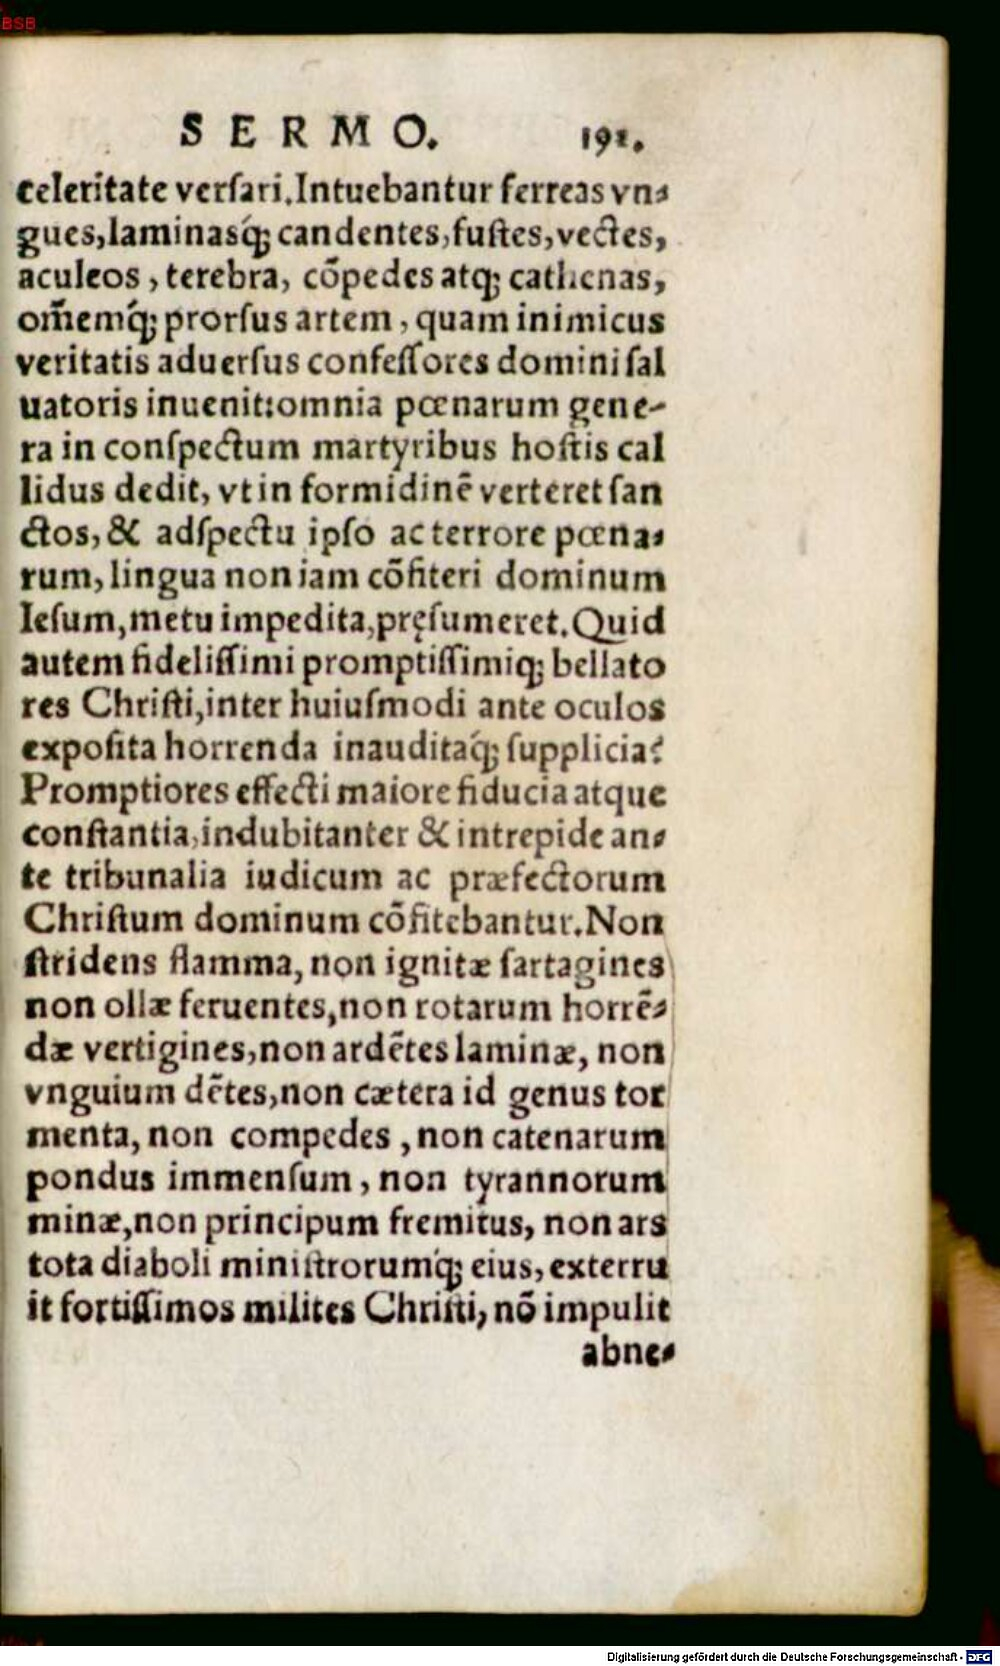 BSB
SERMO. 191.
celeritate verſari. Intuebantur ferreas vn-
gues, laminasq́; candentes, fuſtes, vectes,
aculeos, terebra, cōpedes atq; cathenas,
om̄emq́; prorſus artem, quam inimicus
veritatis aduerſus confeſſores domini ſal
uatoris inuenit: omnia pœnarum gene-
ra in conſpectum martyribus hoſtis cal
lidus dedit, vt in formidinē verteret ſan
ctos, & adſpectu ipſo ac terrore pœna-
rum, lingua non iam cōfiteri dominum
Ieſum, metu impedita, pręſumeret. Quid
autem fideliſſimi promptiſſimiq; bellato
res Chriſti, inter huiuſmodi ante oculos
expoſita horrenda inauditaq́; ſupplicia?
Promptiores effecti maiore fiducia atque
conſtantia, indubitanter & intrepide an-
te tribunalia iudicum ac præfectorum
Chriſtum dominum cōfitebantur. Non
ſtridens flamma, non ignitæ ſartagines
non ollæ feruentes, non rotarum horrē-
dæ vertigines, non ardētes laminæ, non
vnguium dētes, non cætera id genus tor
menta, non compedes, non catenarum
pondus immenſum, non tyrannorum
minæ, non principum fremitus, non ars
tota diaboli miniſtrorumq́; eius, exterru
it fortiſſimos milites Chriſti, nō impulit
abne-
Digitalisierung gefördert durch die Deutsche Forschungsgemeinschaft - DFG